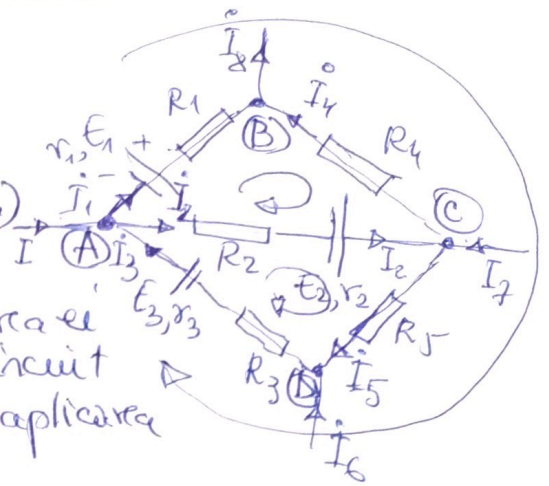 I8
R1
I4
B
R4
r1, E1 +
-
I1
I2
C
I
A
I3
R2
I2
I7
E3, r3
E2, r2
R5
R3
D
I5
I6
ncuit
aplicarea